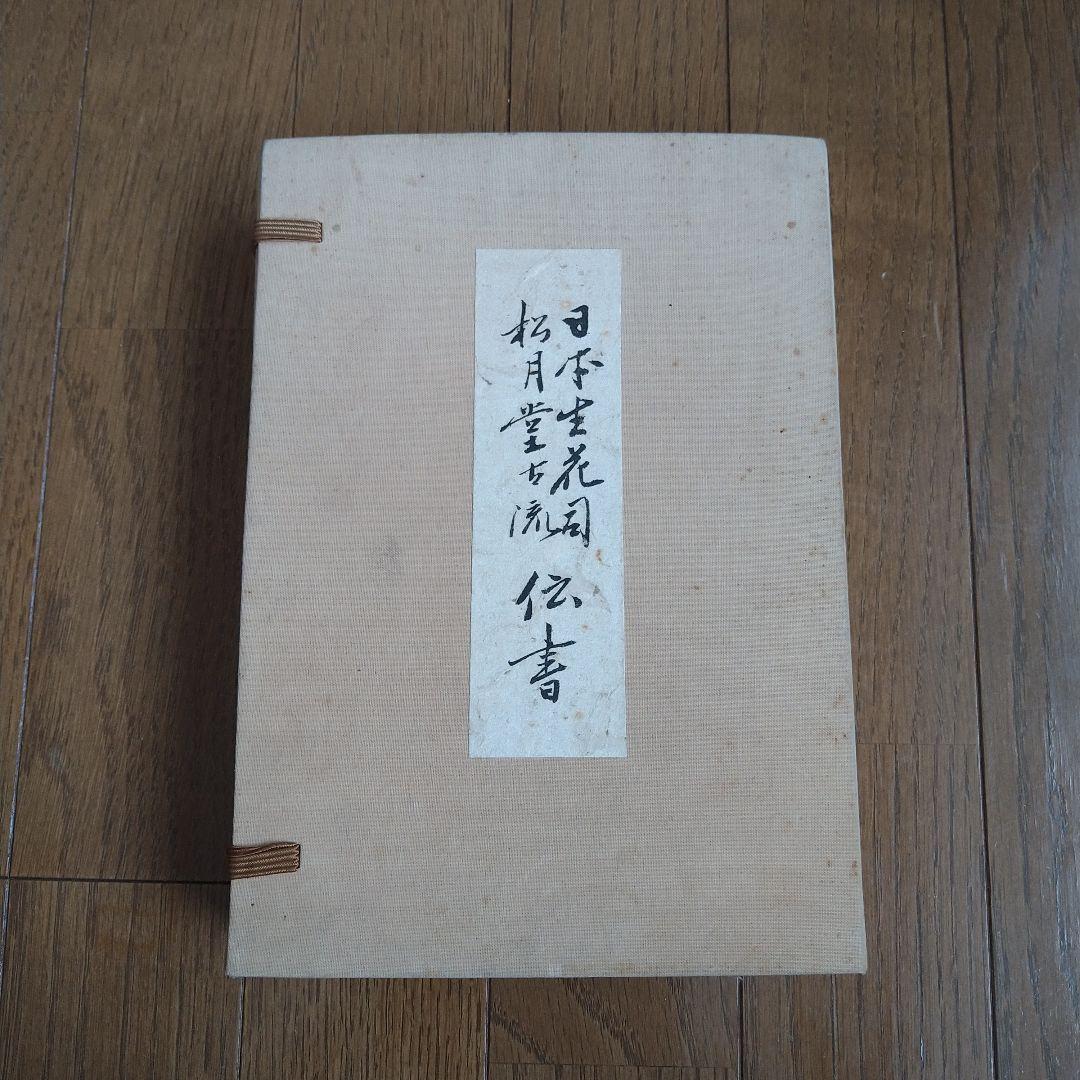 日本生花司
松月堂古流
伝書